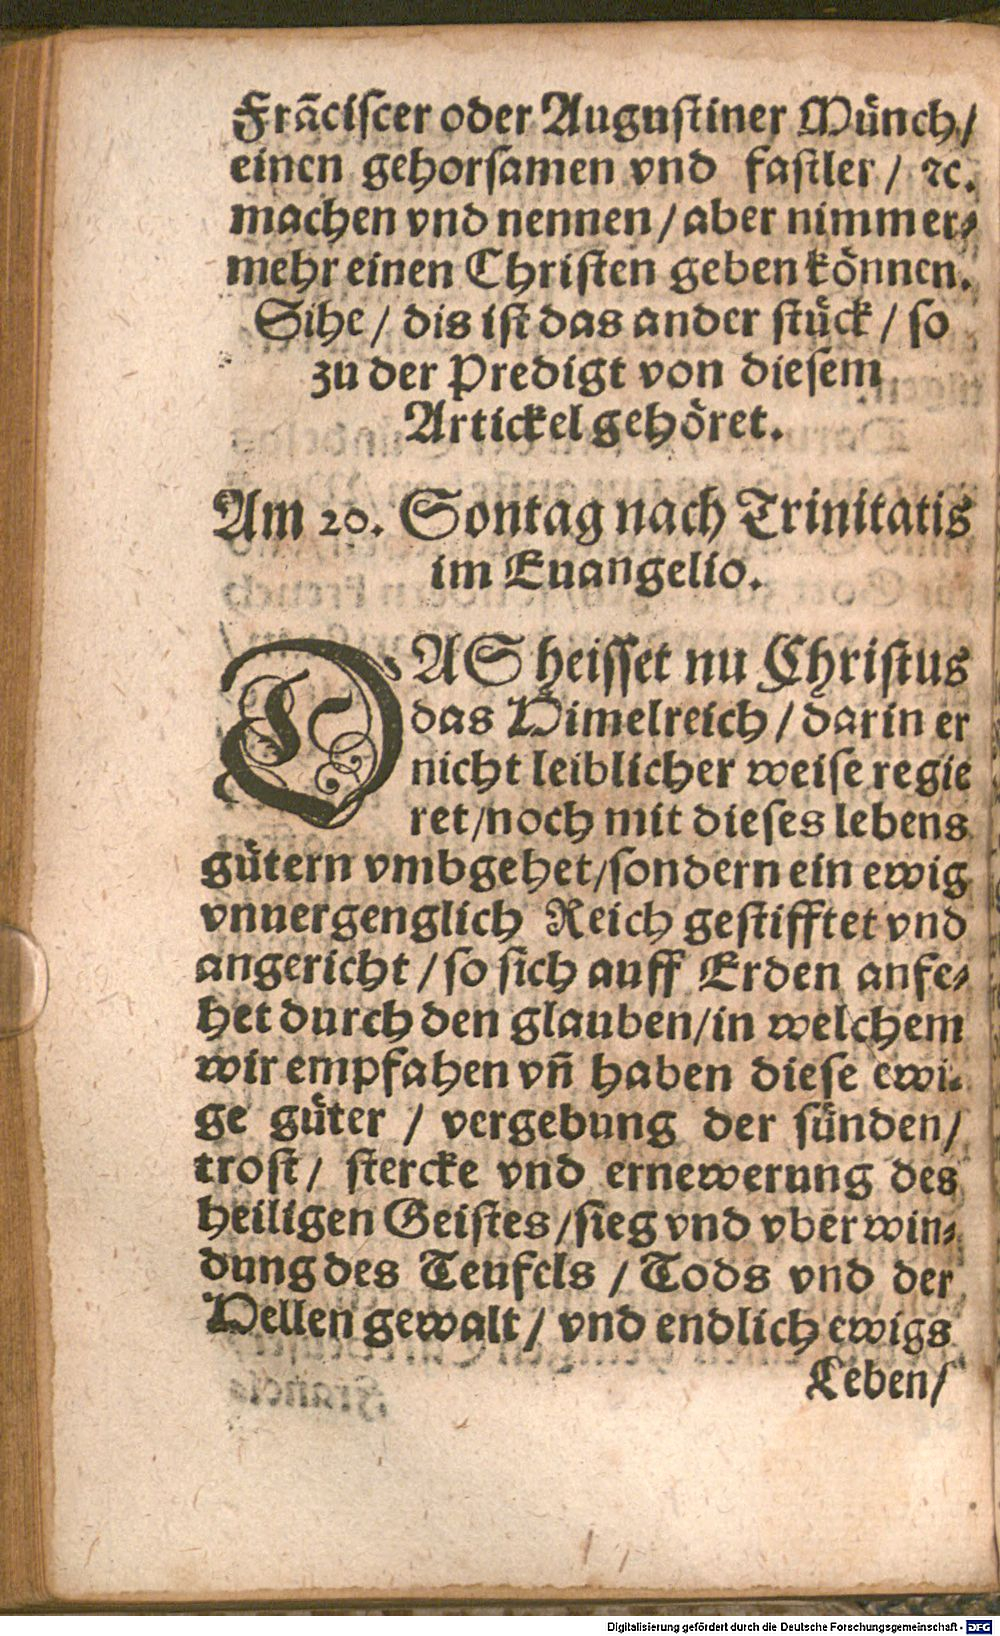 Frãciſcer oder Auguſtiner Muͤnch/
einen gehorſamen vnd faſtler / ꝛc.
machen vnd nennen / aber nimmer⸗
mehr einen Chriſten geben koͤnnen.
Sihe / dis iſt das ander ſtuͤck / ſo
zu der Predigt von dieſem
Artickel gehoͤret.
Am 20. Sontag nach Trinitatis
im Euangelio.
DAS heiſſet nu Chriſtus
das Himelreich / darin er
nicht leiblicher weiſe regie
ret/noch mit dieſes lebens
guͤtern vmbgehet/ſondern ein ewig
vnuergenglich Reich geſtifftet vnd
angericht / ſo ſich auff Erden anfe⸗
het durch den glauben/in welchem
wir empfahen vñ haben dieſe ewi⸗
ge guͤter / vergebung der ſuͤnden/
troſt/ ſtercke vnd ernewerung des
heiligen Geiſtes/ſieg vnd vberwin⸗
dung des Teufels / Tods vnd der
Hellen gewalt/ vnd endlich ewigs
Leben/
Digitalisierung gefördert durch die Deutsche Forschungsgemeinschaft - DFG